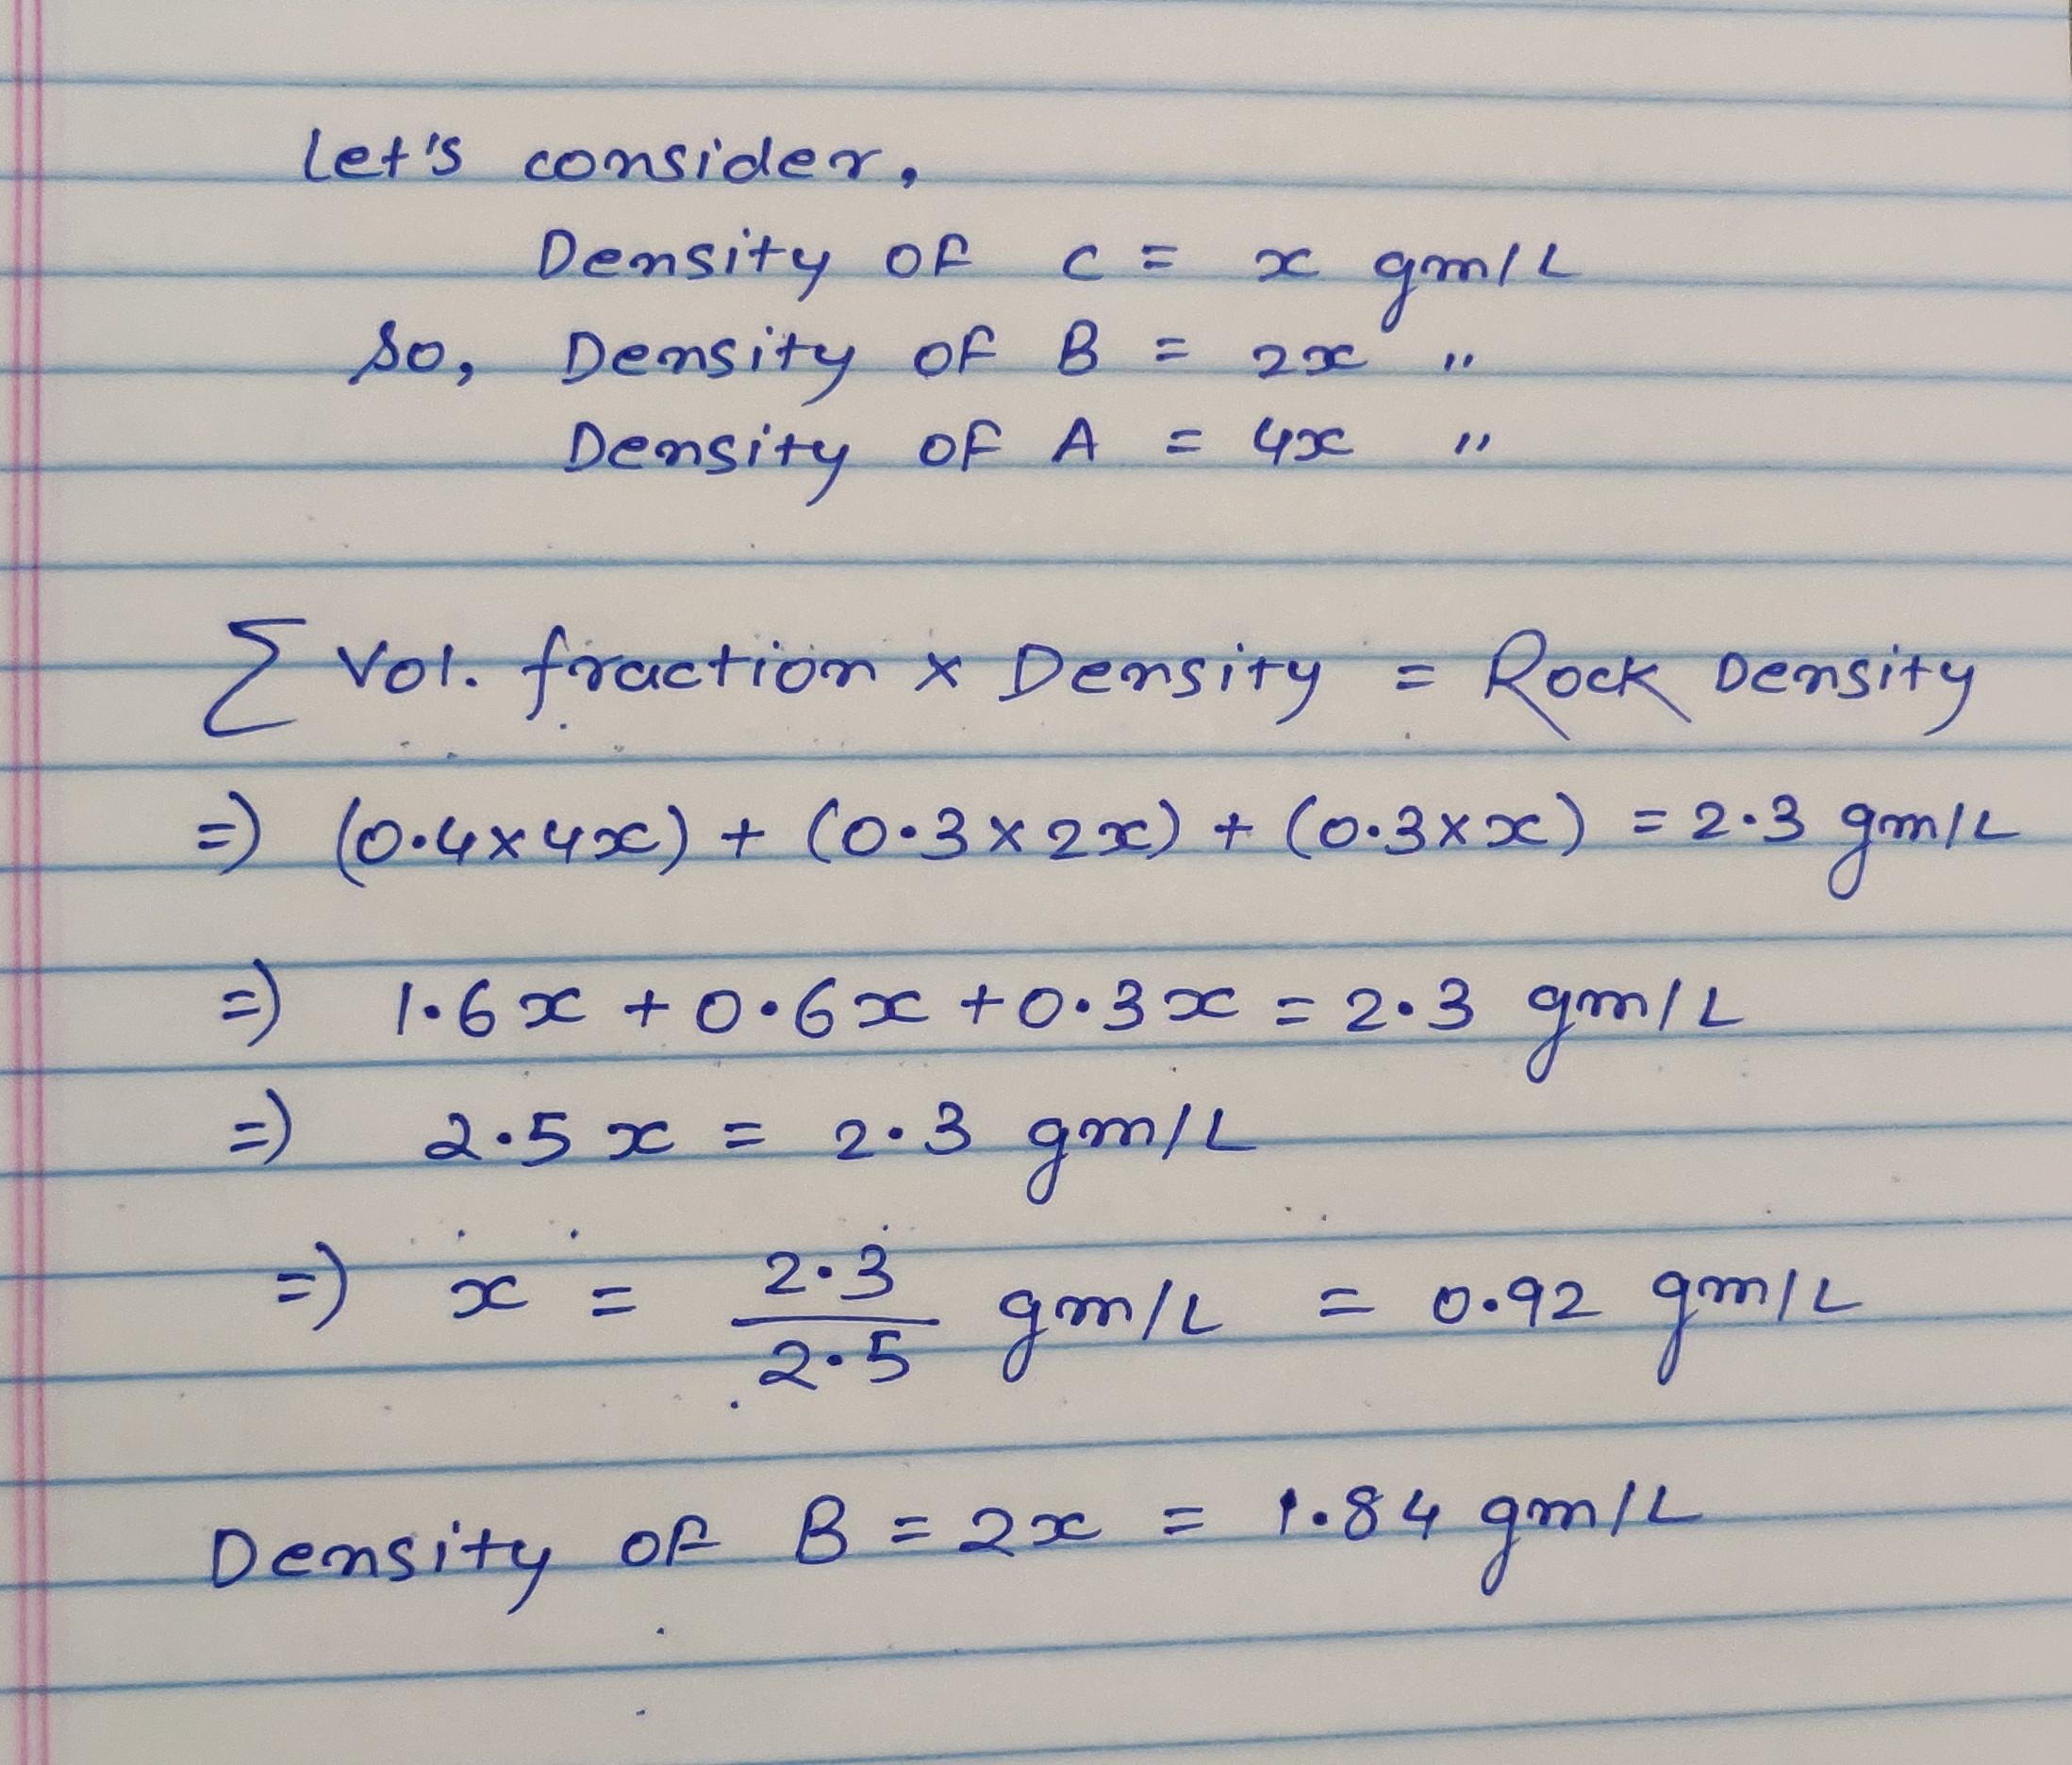 Let's consider,
Density of C = x gm/L
So, Density of B = 2x "
Density of A = 4x "
∑ Vol. fraction × Density = Rock Density
=) (0.4×4x) + (0.3×2x) + (0.3×x) = 2.3 gm/L
=) 1.6x + 0.6x + 0.3x = 2.3 gm/L
=) 2.5x = 2.3 gm/L
=) x = 2.3/2.5 gm/L = 0.92 gm/L
Density of B = 2x = 1.84 gm/L